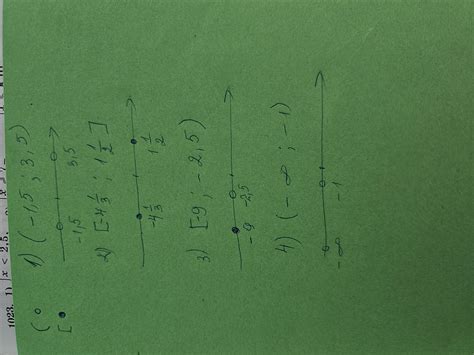 1023. 1) x < 2,5,
( ○
[ ●
1) (-1,5 ; 3,5)
-1,5 3,5
2) [-4 1/3 ; 1 1/2]
-4 1/3 1 1/2
3) [-9 ; -2,5)
-9 -2,5
4) (-∞ ; -1)
-∞ -1